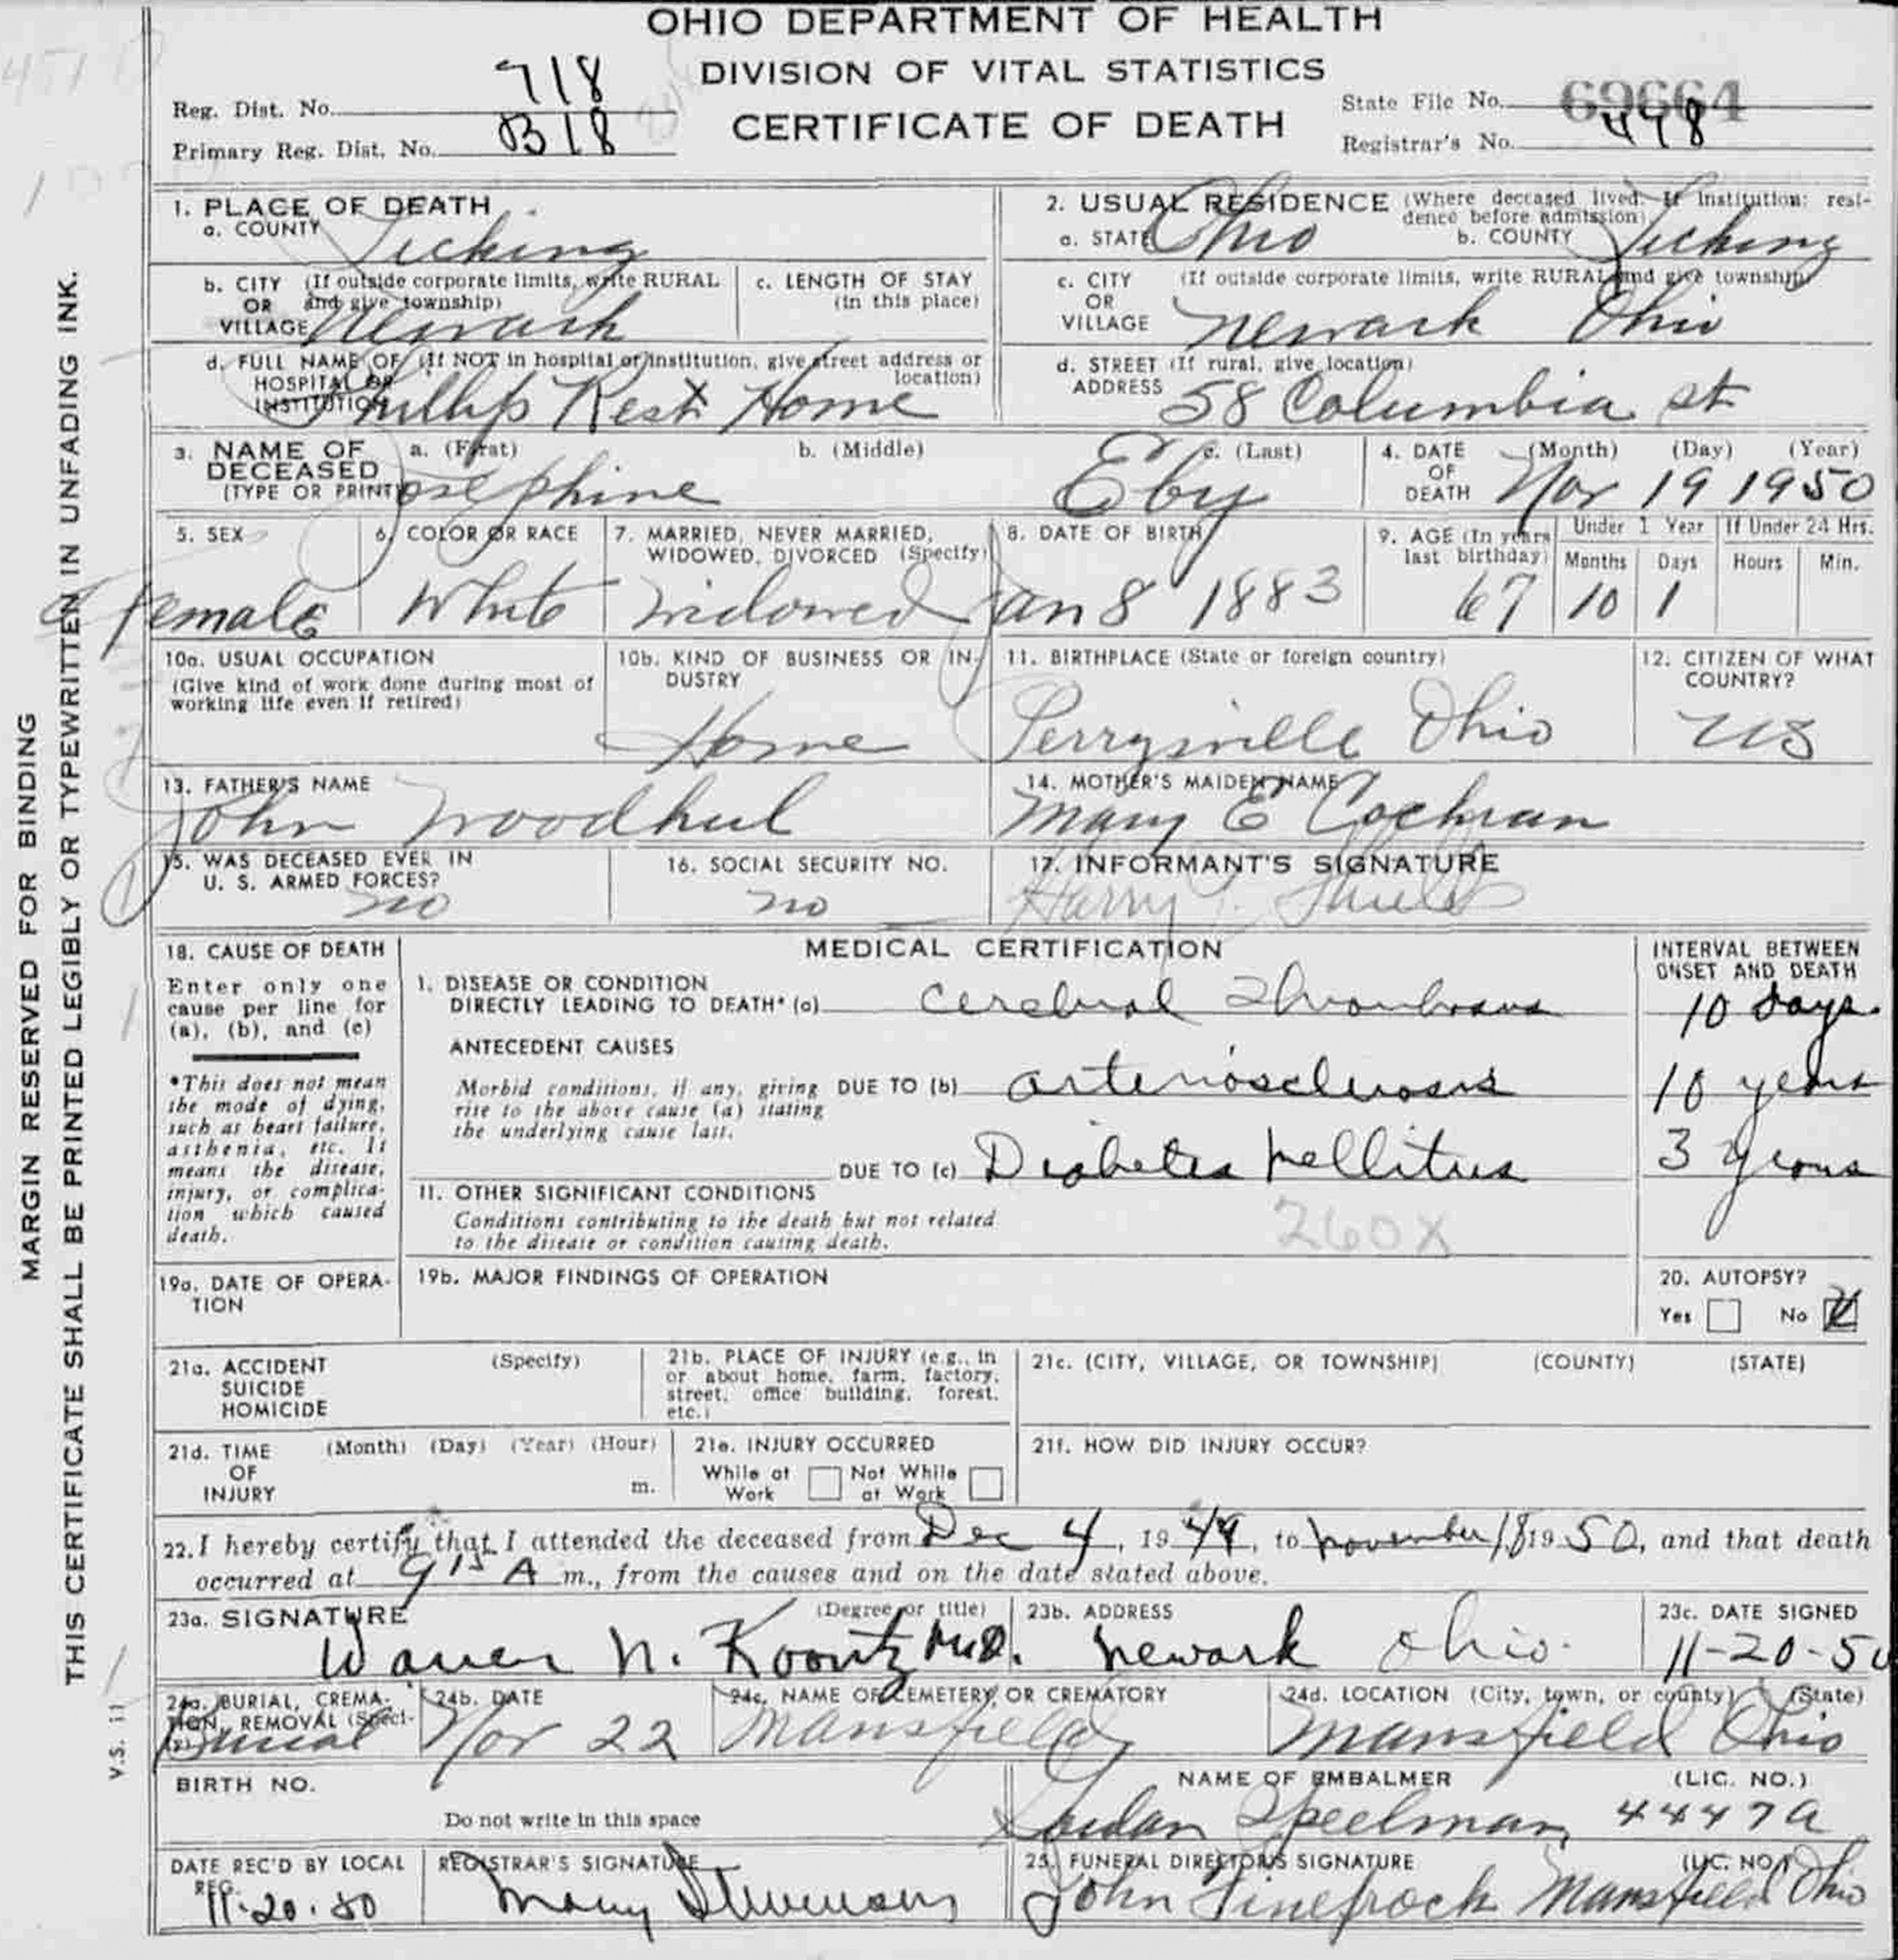 OHIO DEPARTMENT OF HEALTH
DIVISION OF VITAL STATISTICS
CERTIFICATE OF DEATH
Reg. Dist. No. 718
Primary Reg. Dist. No. B18
State File No. 69664
Registrar's No. 478
MARGIN RESERVED FOR BINDING
THIS CERTIFICATE SHALL BE PRINTED LEGIBLY OR TYPEWRITTEN IN UNFADING INK.
V.S. 11
1. PLACE OF DEATH
a. COUNTY Licking
2. USUAL RESIDENCE (Where deceased lived. If institution: resi-
dence before admission)
a. STATE Ohio b. COUNTY Licking
b. CITY (If outside corporate limits, write RURAL
OR and give township)
VILLAGE Newark
c. LENGTH OF STAY
(in this place)
c. CITY (If outside corporate limits, write RURAL and give township)
OR
VILLAGE Newark Ohio
d. FULL NAME OF (If NOT in hospital or institution, give street address or
HOSPITAL OR location)
INSTITUTION Phillips Rest Home
d. STREET (If rural, give location)
ADDRESS 58 Columbia st
3. NAME OF DECEASED
(TYPE OR PRINT)
a. (First) b. (Middle) c. (Last)
Josephine Eby
4. DATE OF DEATH (Month) (Day) (Year)
Nov 19 1950
5. SEX
Female
6. COLOR OR RACE
White
7. MARRIED, NEVER MARRIED,
WIDOWED, DIVORCED (Specify)
Widowed
8. DATE OF BIRTH
Jan 8 1883
9. AGE (In years
last birthday)
67
Under 1 Year
Months Days
10 1
If Under 24 Hrs.
Hours Min.
10a. USUAL OCCUPATION
(Give kind of work done during most of
working life even if retired)
10b. KIND OF BUSINESS OR IN-
DUSTRY
Home
11. BIRTHPLACE (State or foreign country)
Perrysville Ohio
12. CITIZEN OF WHAT
COUNTRY?
US
13. FATHER'S NAME
John Woodhul
14. MOTHER'S MAIDEN NAME
Mary E Cochran
15. WAS DECEASED EVER IN
U. S. ARMED FORCES?
no
16. SOCIAL SECURITY NO.
no
17. INFORMANT'S SIGNATURE
Harry
18. CAUSE OF DEATH
Enter only one
cause per line for
(a), (b), and (c)
*This does not mean
the mode of dying,
such as heart failure,
asthenia, etc. It
means the disease,
injury, or complica-
tion which caused
death.
MEDICAL CERTIFICATION
INTERVAL BETWEEN
ONSET AND DEATH
1. DISEASE OR CONDITION
DIRECTLY LEADING TO DEATH* (a) Cerebral Thrombosis 10 days.
ANTECEDENT CAUSES
Morbid conditions, if any, giving
rise to the above cause (a) stating
the underlying cause last.
DUE TO (b) arteriosclerosis 10 years
DUE TO (c) Diabetes Mellitus 3 years
11. OTHER SIGNIFICANT CONDITIONS
Conditions contributing to the death but not related
to the disease or condition causing death.
260X
19a. DATE OF OPERA-
TION
19b. MAJOR FINDINGS OF OPERATION
20. AUTOPSY?
Yes No
21a. ACCIDENT (Specify)
SUICIDE
HOMICIDE
21b. PLACE OF INJURY (e.g., in
or about home, farm, factory,
street, office building, forest,
etc.)
21c. (CITY, VILLAGE, OR TOWNSHIP) (COUNTY) (STATE)
21d. TIME (Month) (Day) (Year) (Hour)
OF
INJURY m.
21e. INJURY OCCURRED
While at Work Not While at Work
21f. HOW DID INJURY OCCUR?
22. I hereby certify that I attended the deceased from Dec 4, 1949, to November 18 1950, and that death
occurred at 9 15 A m., from the causes and on the date stated above.
23a. SIGNATURE (Degree or title)
Warren N. Koontz M.D.
23b. ADDRESS
Newark Ohio.
23c. DATE SIGNED
11-20-50
24a. BURIAL, CREMA-
TION, REMOVAL (Speci-
Burial
24b. DATE
Nov 22
24c. NAME OF CEMETERY OR CREMATORY
Mansfield
24d. LOCATION (City, town, or county) (State)
Mansfield Ohio
BIRTH NO.
Do not write in this space
NAME OF EMBALMER (LIC. NO.)
Speelman 4447A
DATE REC'D BY LOCAL
REG.
11-20-50
REGISTRAR'S SIGNATURE
Mary Stevenson
25. FUNERAL DIRECTOR'S SIGNATURE (LIC. NO.)
John Finefrock Mansfield Ohio